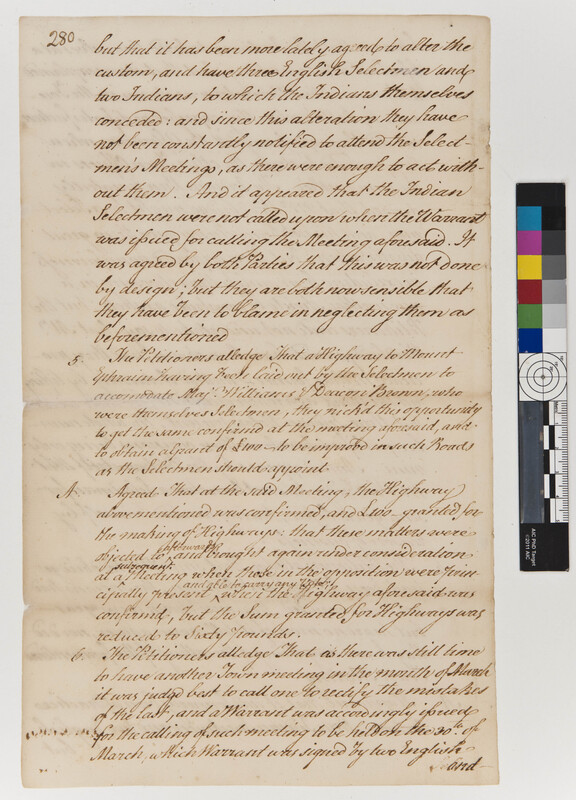 280
but that it has been more lately agreed to alter the
custom, and have three English Selectmen and
two Indians, to which the Indians themselves
conceded: and since this alteration they have
not been constantly notified to attend the Select-
men's Meetings, as there were enough to act with-
out them. And it appeared that the Indian
Selectmen were not called upon when the Warrant
was issued for calling the Meeting aforesaid. It
was agreed by both Parties that this was not done
by design; but they are both now sensible that
they have been to blame in neglecting them as
beforementioned
5. The Petitioners alledge That a Highway to Mount
Ephraim having been laid out by the Selectmen to
accomodate Majr. Williams & Deacon Brown, who
were themselves Selectmen they nick'd this opportunity
to get the same confirmed at the meeting aforesaid, and
to obtain a Grant of £100 to be improved in such Roads
as the Selectmen should appoint
A. Agreed That at the said Meeting, the Highway
abovementioned was confirmed, and £100 granted for
the making of Highways: that these matters were
objected to, afterwards and brought again under consideration
at a subsequent Meeting when those in the opposition were prin-
cipally present and able to carry any Vote; when the Highway aforesaid was
confirmed, but the Sum granted for Highways was
reduced to Sixty pounds.
6. The Petitioners alledge That as there was still time
to have another Town meeting in the month of March
it was judged best to call one to rectify the mistakes
of the last, and a Warrant was accordingly issued
for the calling of such meeting to be held on the 30th. of
March, which Warrant was signed by two English
and